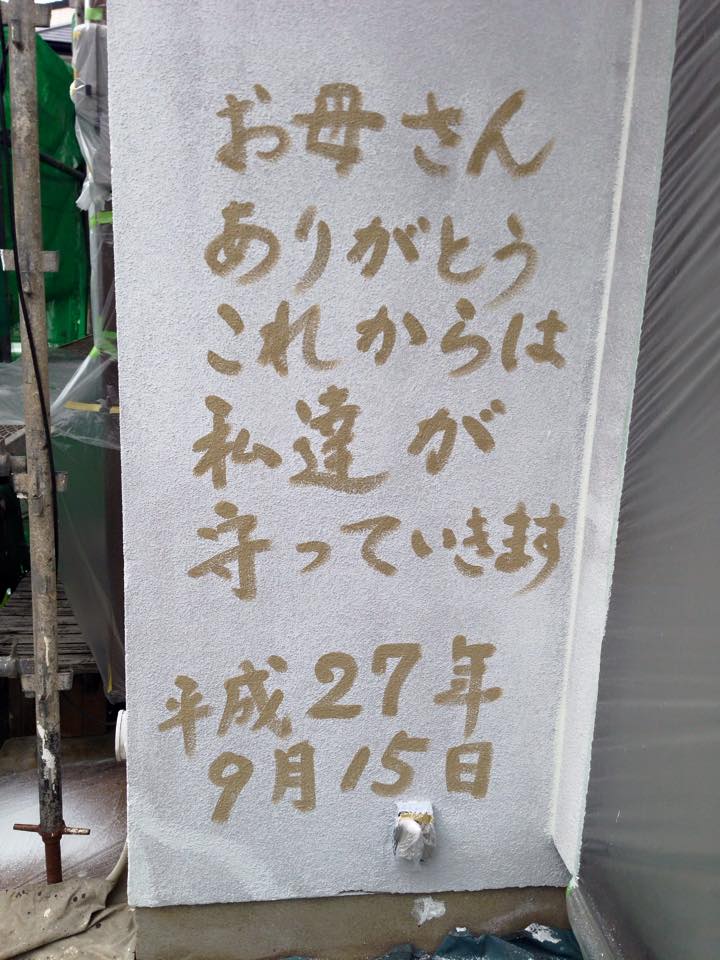 お母さん
ありがとう
これからは
私達が
守っていきます
平成27年
9月15日